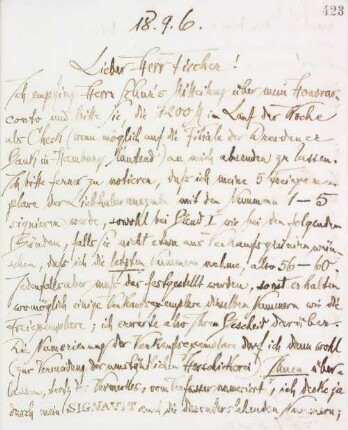 423
18. 9. 6.
Lieber Herr Fischer!
Ich empfing Herrn Mitteilung über mein Honorar-
conto und bitte Sie, die 7200 M im Lauf der Woche
als Check (wenn möglich auf die Filiale der Dresdener
Bank in Hamburg lautend) an mich absenden zu lassen.
Ich bitte ferner zu notieren, daß ich meine 5 Freiexem-
plare der Liebhaberausgabe mit den Nummern 1–5
signieren werde, sowohl bei Band I wie bei den folgenden
Bänden, falls Sie nicht etwa aus Verkaufsgründen wün-
schen, daß ich die letzten Nummern nehme, also 56–60.
Jedenfalls aber muß das festgestellt werden, sonst erhalten
womöglich einige Verkaufsexemplare dieselben Nummern wie die
Freiexemplare; ich erwarte also Ihren Bescheid darüber.
Die Numerierung der Verkaufsexemplare darf ich dann wohl
(zur Vermeidung der umständlichen) Ihnen über-
lassen, trotz des Vermerkes „vom Verfasser numeriert“; ich decke ja
durch mein SIGNAVIT auch die Nummern;